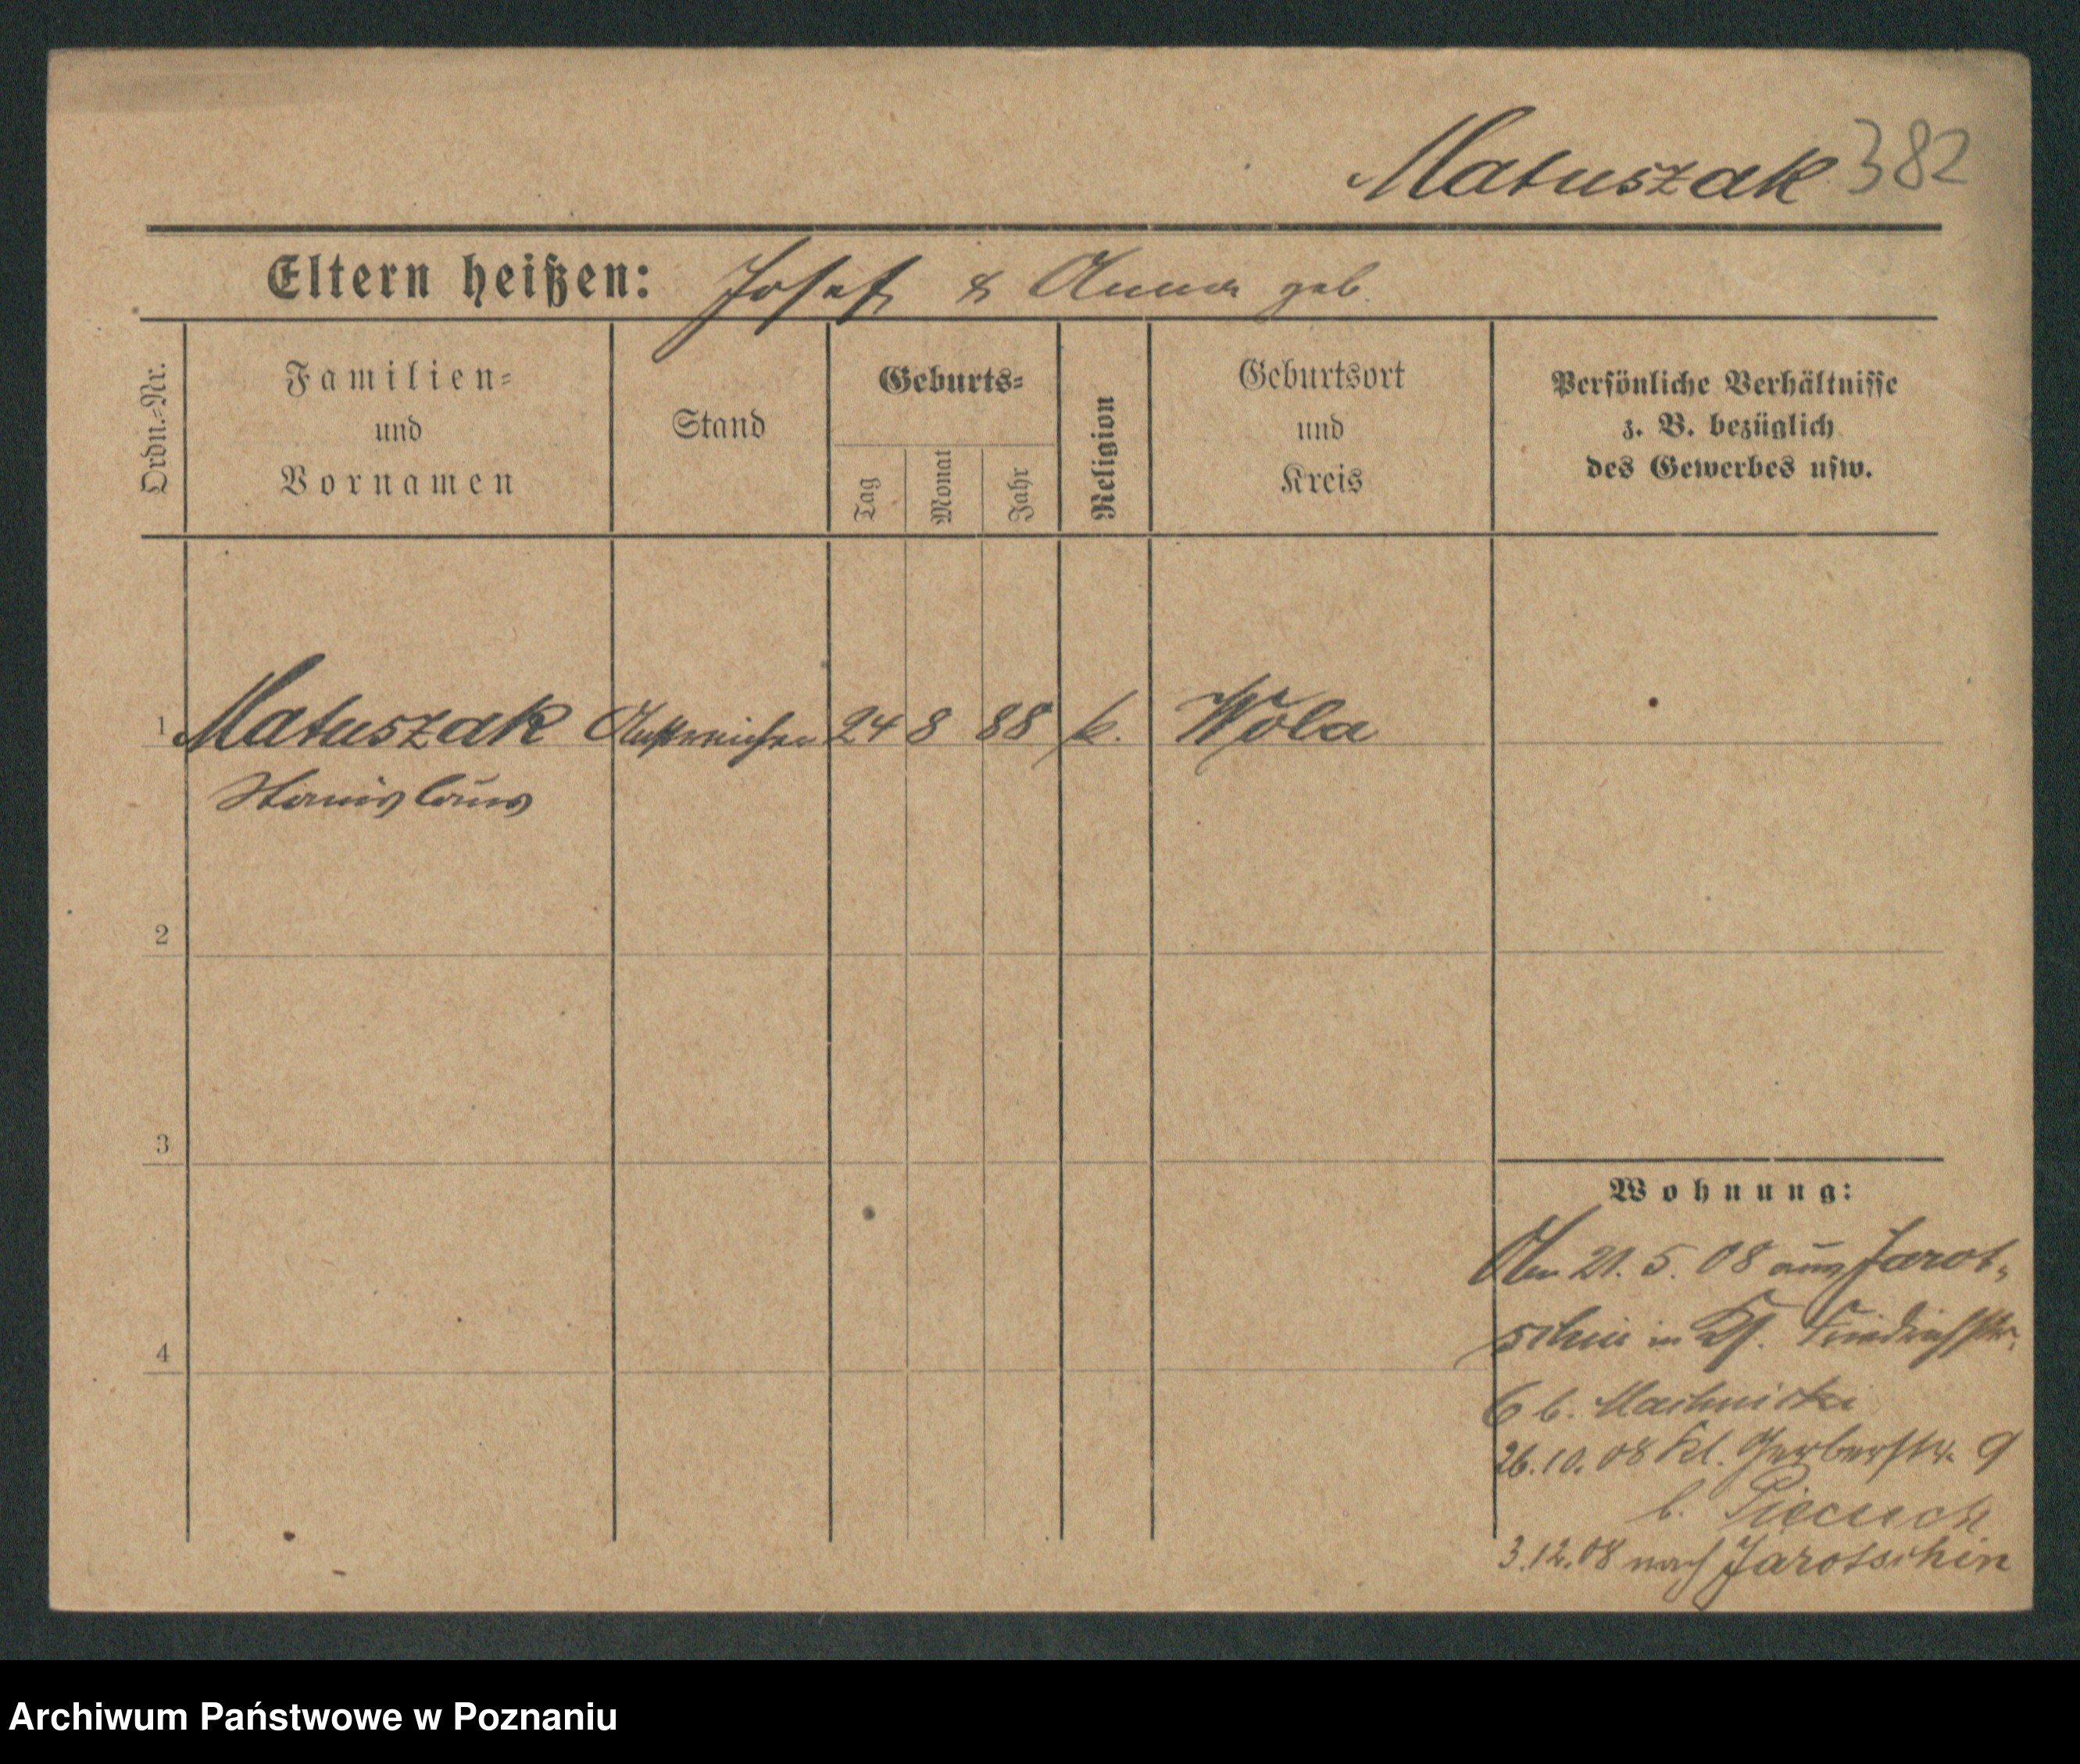 Matuszak 382
Eltern heißen: Josef & Anna geb.
Ordn.-Nr.
Familien-
und
Vornamen
Stand
Geburts-
Tag
Monat
Jahr
Religion
Geburtsort
und
Kreis
Persönliche Verhältnisse
z. B. bezüglich
des Gewerbes usw.
1 Matuszak Anstreicher 24 8 88 k. Wola
Stanislaus
2
3
4
Wohnung:
Am 21. 5. 08 aus Jarot-
schin in Friedrichstr.
6 b.
26.10.08 Kl. Gerberstr. 9
b. Piecuch
3.12.08 nach Jarotschin
Archiwum Państwowe w Poznaniu